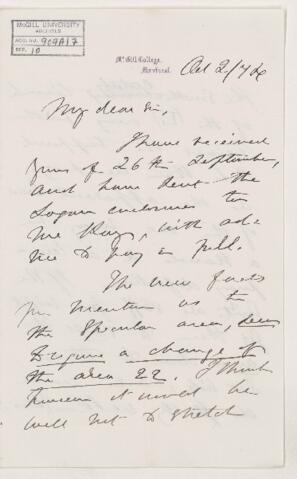 McGILL UNIVERSITY
ARCHIVES
ACC. NO. 909A17
REF. 10
McGill College,
Montreal.
Oct 2/76
My dear Sir,
I have received
yours of 26th September,
and have sent the
Logan enclosures to
Mr Kay, with ad-
vice to pay in full.
The new facts
you mention as to
the Specular area, seem
to require a change of
the area 22. I think
however it would be
well not to stretch